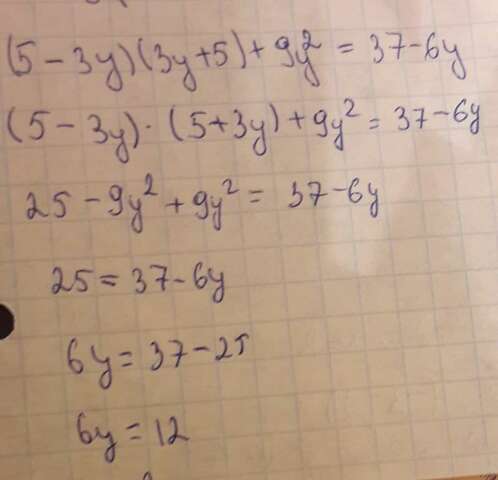 (5-3y)(3y+5)+9y² = 37-6y
(5-3y)·(5+3y)+9y² = 37-6y
25-9y²+9y² = 37-6y
25 = 37-6y
6y = 37-25
6y = 12